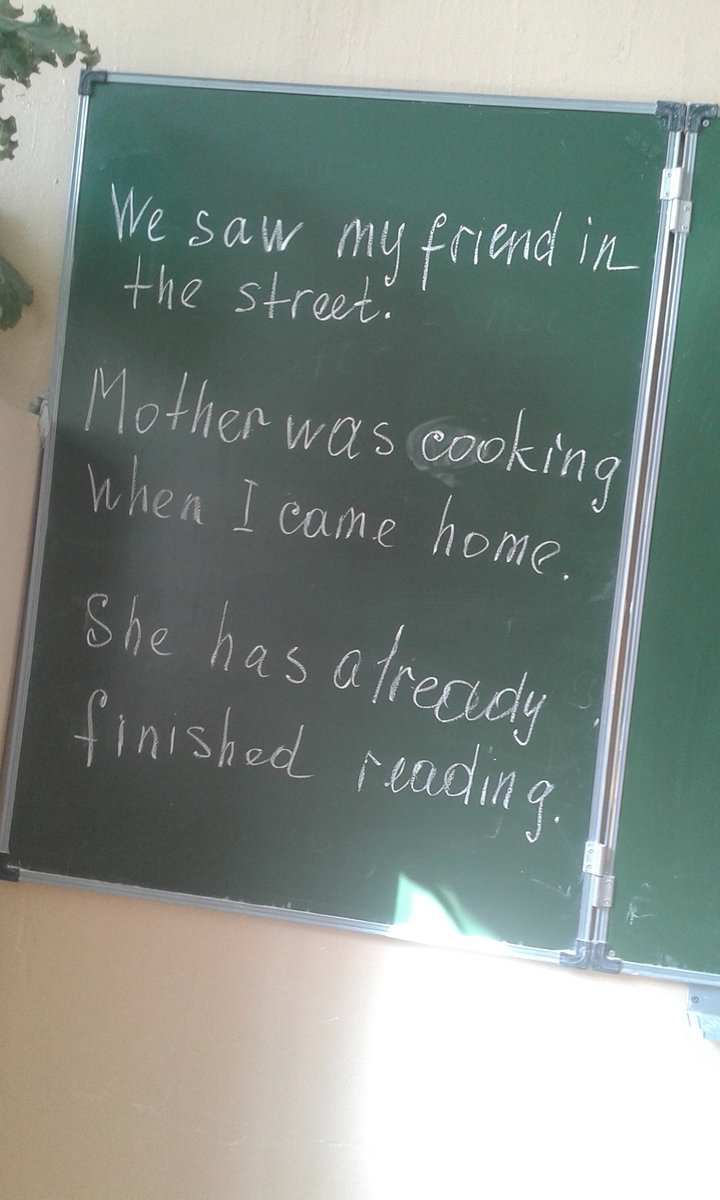 We saw my friend in
the street.
Mother was cooking
when I came home.
She has already
finished reading.